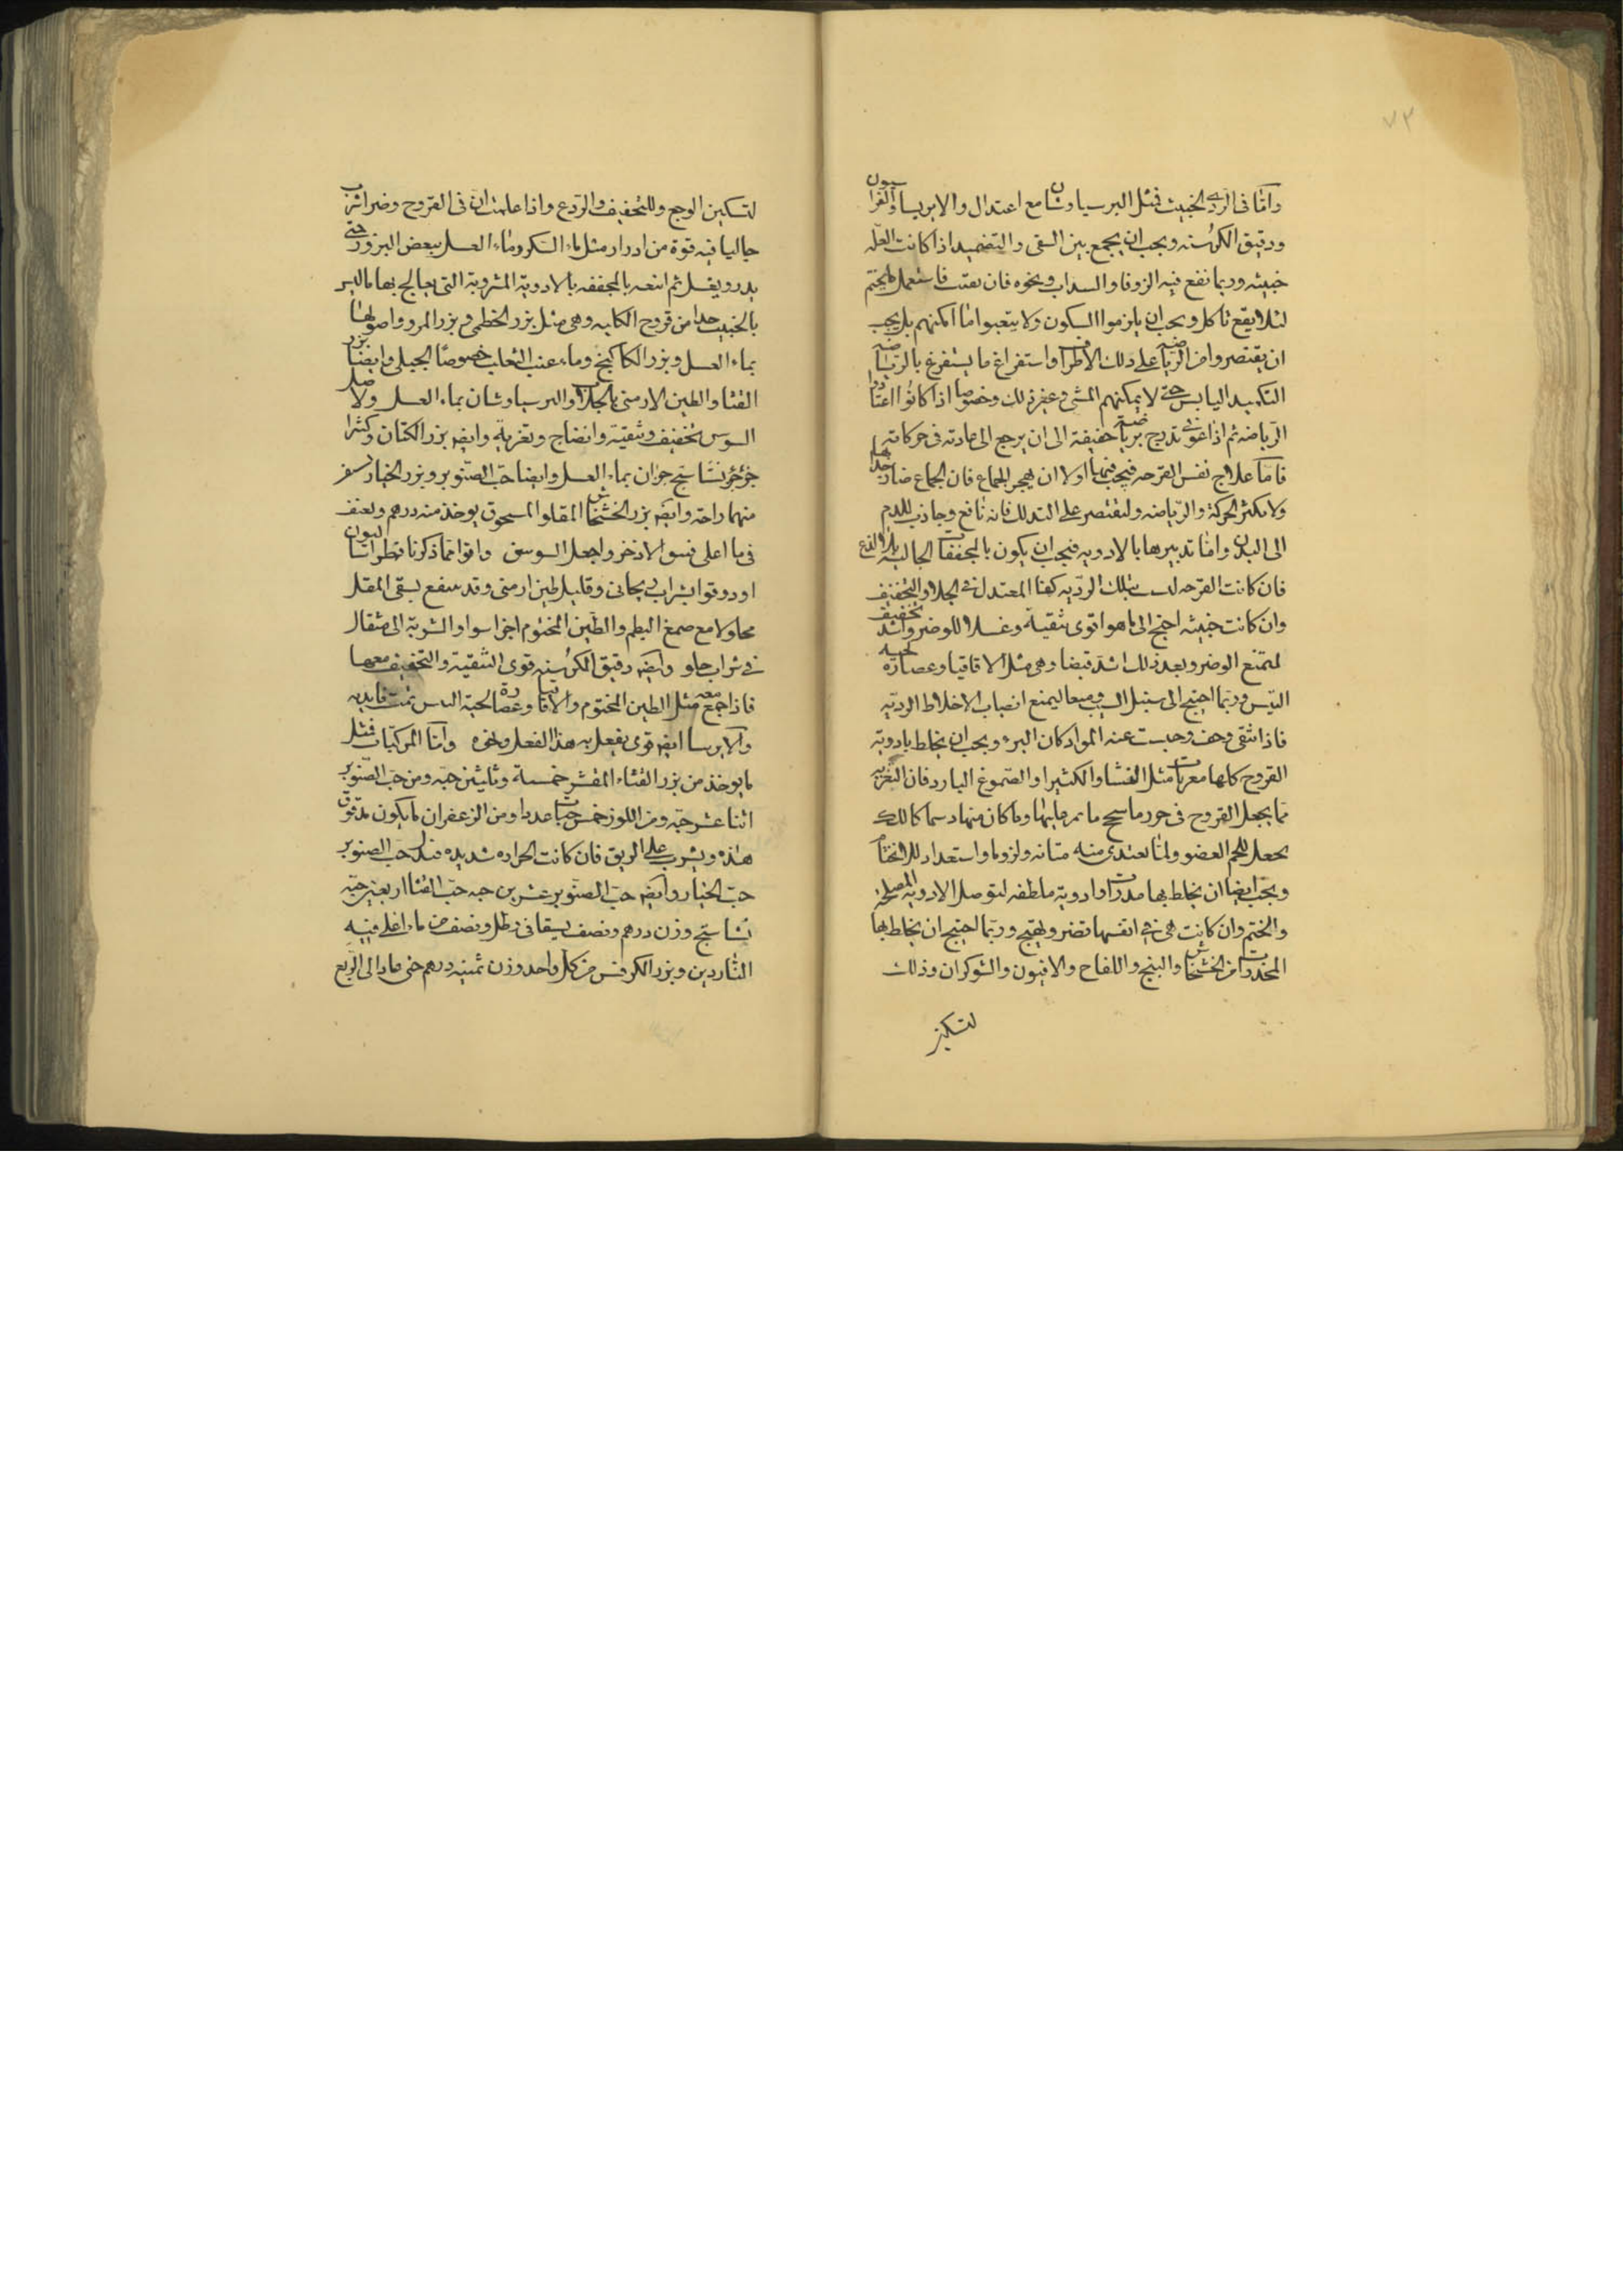 ٧٣
واما في الردي الخبيث فمثل البرسياوشان مع اعتدال والايرسا والفراسيون
ودقيق الكرسنه ويجب ان يجمع بين السقى والتضميد اذا كانت العله
خبيثه وربما نفع فيه الزوفا والسداب ونحوه فان نقيت فاستعمل ما يختم
لئلا يقع تاكل ويجب ان يلزموا السكون ولا يتعبوا ما امكنهم بل يجب
ان يقتصروا من الرياضه على دلك الاطراف واستفراغ ما يستفرغ بالرياضه
التكميد اليابس حتى لا يمكنهم المشى وغير ذلك وخصوصا اذا كانوا اعتادوا
الرياضه ثم اذا عوفى تدرج برياضة خفيفة الى ان يرجع الى عادته في حركاته
فاما علاج نفس القرحه فيجب فيها اولا ان يهجر الجماع فان الجماع ضار بها جدا
ولا يكثر الحركة والرياضه وليقتصر على التدلك فانه نافع وجاذب للدم
الى البدن واما تدبيرها بالادويه فيجب ان يكون بالمجففات الجاليه بلا لذع
فان كانت القرحه ليست بتلك الرديه كفا المعتدل في الجلا والتجفيف
وان كانت خبيثه احتج الى ما هو اقوى تنقية وغسلا للوضر واشد تجفيف
لتمنع الوضر وبعد ذلك اشد قبضا وهي مثل الاقاقيا وعصارة لحيه
التيس وربما احتج الى سنبل الطيب ومیعا ليمنع انصباب الاخلاط الرديه
فاذا تنقى وجف وحبست عنه المواد كان البرء ويجب ان يخلط بادوية
القروح كلها مغريات مثل النشا والكثيرا والصموغ البارد فان التغريه
مما يجعل القروح في حرز ما سحج ما يمر عليها وما كان منها دسما كاللك
يجعل للحم العضو ولما يغتذى منه متانه ولزوما واستعداد للالتحام
ويجب ايضا ان يخلط بها مدرات او ادوية ملطفه لتوصل الادويه المصلحه
والختم وان كانت هي في انفسها تضر وتهيج وربما احتيج ان يخلط بها
المخدرات من الخشخاش والبنج واللفاح والافيون والشوكران وذلك
لتسكين
لتسكين الوجع وللتجفيف والردع واذا علمت ان في القروح وضرا شرب
جاليا فيه قوة من ادرار مثل ماء السكر وماء العسل ببعض البزور حتى
يدر ويغسل ثم اتبعه بالمجففه بالادوية المشروبة التي يعالج بها ما ليس
بالخبيث جدا من قروح الكليه وهي مثل بزر الخطمى وبزر المرو واصولها
بماء العسل وبزر الكاكنج وماء عنب الثعلب خصوصا الجبلى وايضا بزر
القثا والطين الارمنى بالجلاب والبرسياوشان بماء العسل ولاصل
السوس تجفيف وتنقية وانضاج وتغرية وايضا بزر الكتان وكثيرا
جزؤ جزؤ نشاستج جزان بماء العسل وايضا حب الصنوبر وبزر الخيار يسفر
منهما راحة وايضا بزر الخشخاش المقلو المسحوق يوخذ منه درهم وينقع
في ما اغلى فيه الاذخر واصل السوس واقوا مما ذكرنا قطراساليون
او دوقوا بشراب ريحانى وقليل طين ارمنى وقد ينفع بسقى المقل
محلولا مع صمغ البطم والطين المختوم اجزا سوا والشربة الى مثقال
في شراب حلو وايضا دقيق الكرسنه قوى التنقية والتجفيف معها
فاذا جمع معه مثل الطين المختوم والاقاقيا وعصارة لحية التيس تمت فايدته
والايرسا ايضا قوى يفعل به هذا الفعل ونحوه واما المركبات فمثل
ما يوخذ من بزر القثاء المقشر خمسة وثلثين حبه ومن حب الصنوبر
اثنا عشر حبه ومن اللوز خمس حبات عددا ومن الزعفران ما يكون مدقوق
هذه ويشرب على الريق فان كانت الحراره شديده فبدل حب الصنوبر
حب الخيار وايضا حب الصنوبر عشرين حبه حب القثا اربعين حبه
نشاستج وزن درهم ونصف يسقا في رطل ونصف من ماء اغلى فيه
الناردين وبزر الكرفس من كل واحد وزن ثمنيه درهم حتى عاد الى الربع